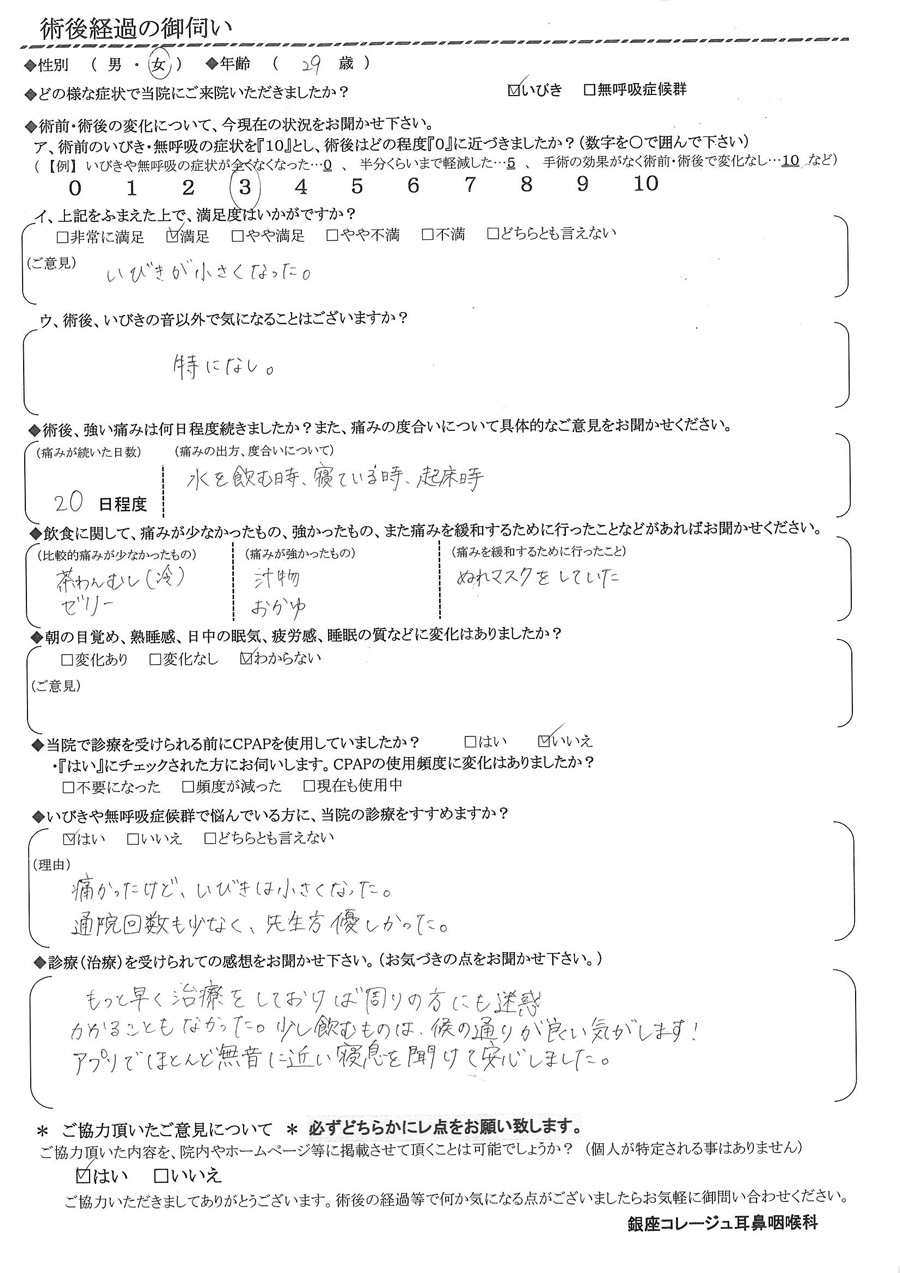 術後経過の御伺い
◆性別 ( 男 ・ 女 ) ◆年齢 ( 29 歳 )
◆どの様な症状で当院にご来院いただきましたか? ☑いびき □無呼吸症候群
◆術前・術後の変化について、今現在の状況をお聞かせ下さい。
ア、術前のいびき・無呼吸の症状を『10』とし、術後はどの程度『0』に近づきましたか?(数字を〇で囲んで下さい)
(【例】いびきや無呼吸の症状が全くなくなった…0 、 半分くらいまで軽減した…5 、 手術の効果がなく術前・術後で変化なし…10 など)
0 1 2 3 4 5 6 7 8 9 10
イ、上記をふまえた上で、満足度はいかがですか?
□非常に満足 ☑満足 □やや満足 □やや不満 □不満 □どちらとも言えない
(ご意見)
いびきが小さくなった。
ウ、術後、いびきの音以外で気になることはございますか?
特になし。
◆術後、強い痛みは何日程度続きましたか?また、痛みの度合いについて具体的なご意見をお聞かせください。
(痛みが続いた日数) (痛みの出方、度合いについて)
水を飲む時、寝ている時、起床時
20 日程度
◆飲食に関して、痛みが少なかったもの、強かったもの、また痛みを緩和するために行ったことなどがあればお聞かせください。
(比較的痛みが少なかったもの) (痛みが強かったもの) (痛みを緩和するために行ったこと)
茶わんむし(冷) 汁物 ぬれマスクをしていた
ゼリー おかゆ
◆朝の目覚め、熟睡感、日中の眠気、疲労感、睡眠の質などに変化はありましたか?
□変化あり □変化なし ☑わからない
(ご意見)
◆当院で診療を受けられる前にCPAPを使用していましたか? □はい ☑いいえ
・『はい』にチェックされた方にお伺いします。CPAPの使用頻度に変化はありましたか?
□不要になった □頻度が減った □現在も使用中
◆いびきや無呼吸症候群で悩んでいる方に、当院の診療をすすめますか?
☑はい □いいえ □どちらとも言えない
(理由)
痛かったけど、いびきは小さくなった。
通院回数も少なく、先生方優しかった。
◆診療(治療)を受けられての感想をお聞かせ下さい。(お気づきの点をお聞かせ下さい。)
もっと早く治療をしておけば周りの方にも迷惑
かかることもなかった。少し飲むものは、喉の通りが良い気がします!
アプリでほとんど無音に近い寝息を聞けて安心しました。
* ご協力頂いたご意見について * 必ずどちらかにレ点をお願い致します。
ご協力頂いた内容を、院内やホームページ等に掲載させて頂くことは可能でしょうか? (個人が特定される事はありません)
☑はい □いいえ
ご協力いただきましてありがとうございます。術後の経過等で何か気になる点がございましたらお気軽に御問い合わせください。
銀座コレージュ耳鼻咽喉科